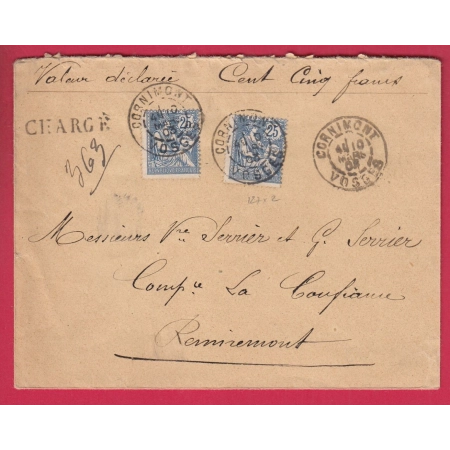 Valeur déclarée Cent Cinq francs
CHARGÉ
363
CORNIMONT
VOSGES
25
CORNIMONT
VOSGES
25
CORNIMONT
10
VOSGES
Messieurs Vve Serrier et G. Serrier
Compie La Confiance
Remiremont